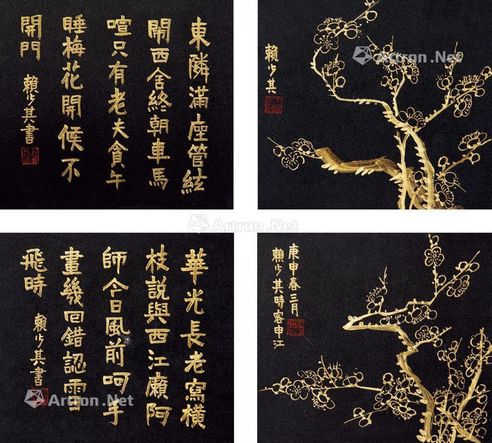 東隣滿座管絃
鬧西舍終朝車馬
喧只有老夫貪午
睡梅花開候不
開門
賴少其書
賴少其
華光長老寫橫
枝說與西江廠阿
師今日風前呵手
畫幾回錯認雪
飛時
賴少其書
庚申春三月
賴少其時客申江
Artron.Net